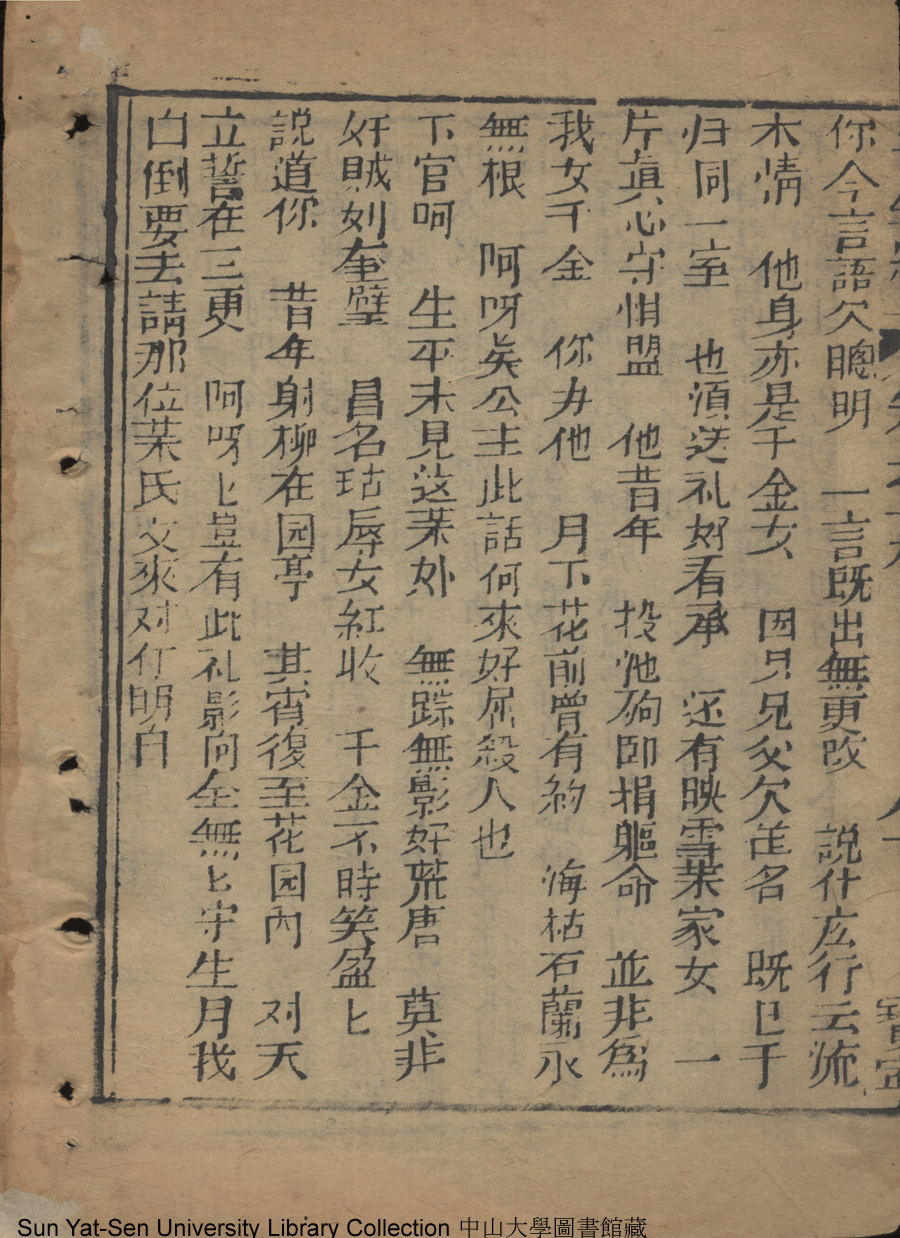 你今言語欠聰明　一言既出無更改　説什庅行云流
木情　他身亦是千金女　因見兄父欠花名　既已于
归同一室　也湏送礼好看承　还有映雪葉家女　一
片真心守悄盟　他昔年　投池殉即捐軀命　並非爲
我女千金　你为他　月下花前曾有約　海枯石蘭永
無根　阿呀矣公主此話何來好屈殺人也
下官呵　生平未見这葉外　無踪無影好荒唐　莫非
奸賊刘奎璧　昌名玷辱女紅收　千金不時笑盈匕
説道你　昔年射柳在园亭　其宵復至花园内　对天
立誓在三更　阿呀匕豈有此礼影向全無匕守生月我
白倒要去請那位葉氏文來对个明白
Sun Yat-Sen University Library Collection 中山大學圖書館藏